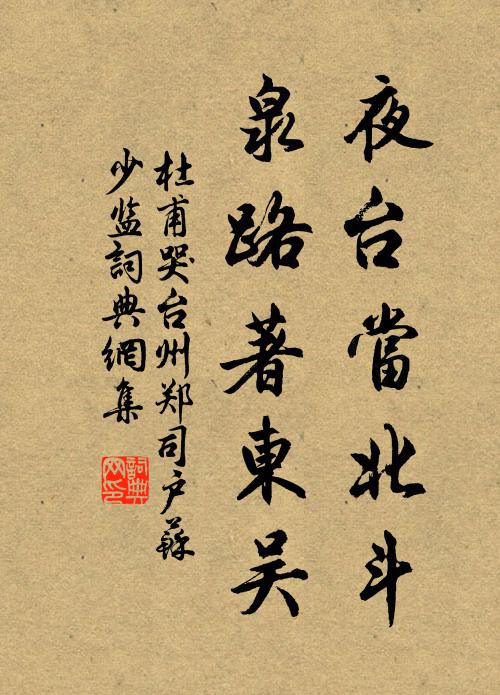 夜台當北斗
泉路著東吴
杜甫哭台州郑司户蘇
少监詞典網集
詞典
网印